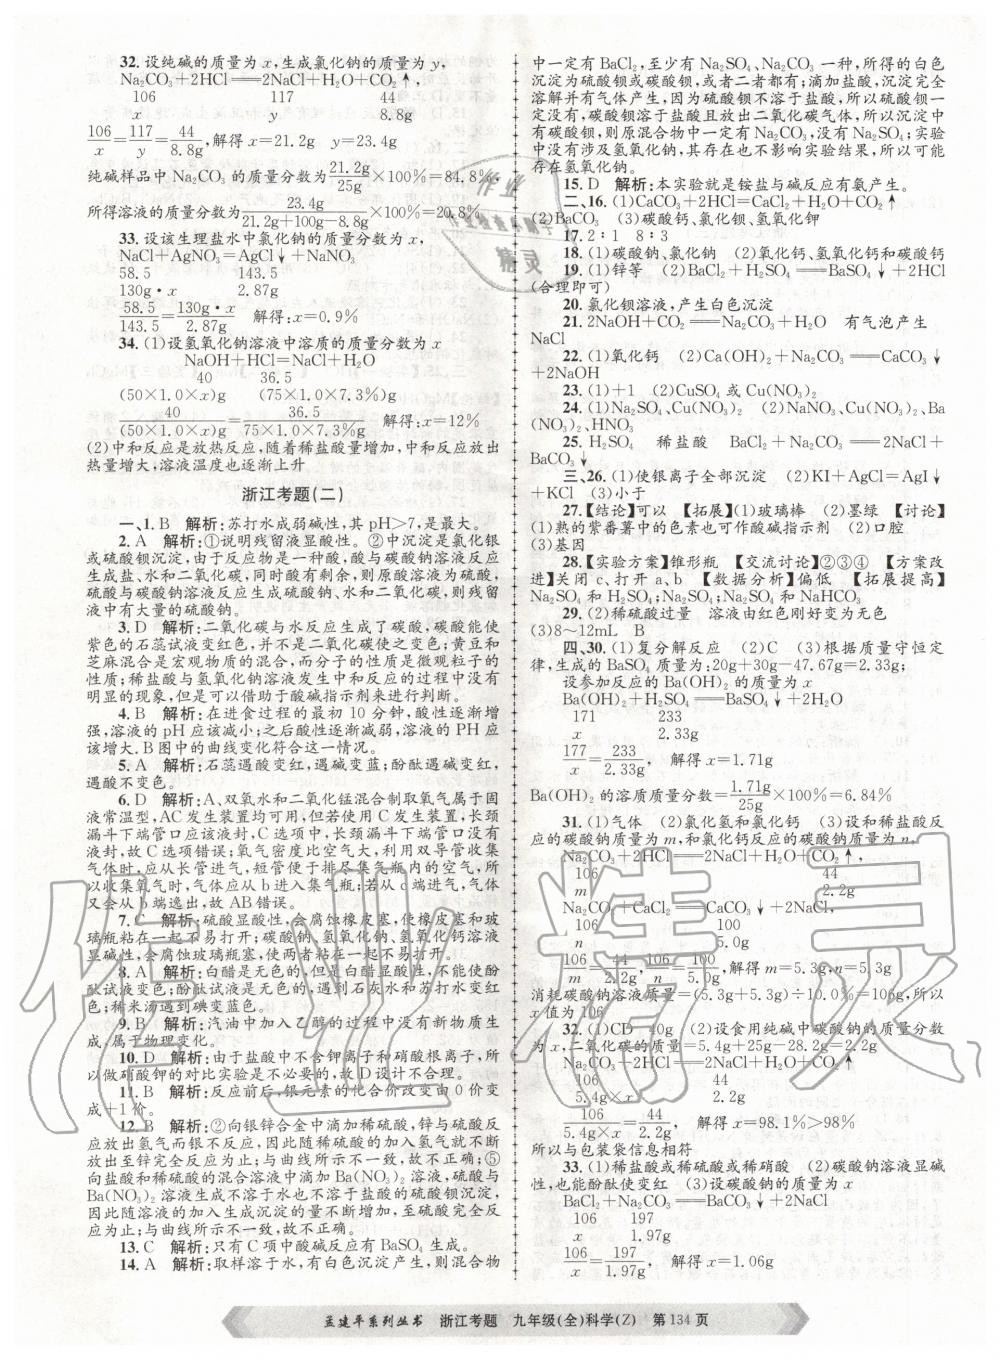 32. 设纯碱的质量为 x,生成氯化钠的质量为 y,
Na₂CO₃+2HCl══2NaCl+H₂O+CO₂↑,
106 117 44
x y 8.8g
106/x=117/y=44/8.8g,解得 x=21.2g y=23.4g
纯碱样品中 Na₂CO₃ 的质量分数为21.2g/25g×100%=84.8%
所得溶液的质量分数为23.4g/21.2g+100g-8.8g×100%=20.8%
33. 设该生理盐水中氯化钠的质量分数为 x,
NaCl+AgNO₃=AgCl↓+NaNO₃
58.5 143.5
130g·x 2.87g
58.5/143.5=130g·x/2.87g 解得:x=0.9%
34. (1)设氢氧化钠溶液中溶质的质量分数为 x
NaOH+HCl=NaCl+H₂O
40 36.5
(50×1.0×x)g (75×1.0×7.3%)g
40/(50×1.0×x)g=36.5/75×1.0×7.3%g 解得:x=12%
(2)中和反应是放热反应,随着稀盐酸量增加,中和反应放出
热量增大,溶液温度也逐渐上升
浙江考题(二)
一、1. B 解析:苏打水成弱碱性,其 pH>7,是最大。
2. A 解析:①说明残留液显酸性。②中沉淀是氯化银
或硫酸钡沉淀,由于反应物是一种酸,酸与碳酸钠溶液反应
生成盐、水和二氧化碳,同时酸有剩余,则原酸溶液为硫酸,
硫酸与碳酸钠溶液反应生成硫酸钠、水和二氧化碳,则残留
液中有大量的硫酸钠。
3. D 解析:二氧化碳与水反应生成了碳酸,碳酸能使
紫色的石蕊试液变红色,并不是二氧化碳使之变色;黄豆和
芝麻混合是宏观物质的混合,而分子的性质是微观粒子的
性质;稀盐酸与氢氧化钠溶液发生中和反应的过程中没有
明显的现象,但是可以借助于酸碱指示剂来进行判断。
4. B 解析:在进食过程的最初 10 分钟,酸性逐渐增
强,溶液的 pH 应该减小;之后酸性逐渐减弱,溶液的 PH 应
该增大. B 图中的曲线变化符合这一情况。
5. A 解析:石蕊遇酸变红,遇碱变蓝;酚酞遇碱变红,
遇酸不变色。
6. D 解析:A、双氧水和二氧化锰混合制取氧气属于固
液常温型,AC 发生装置均可用,但若使用 C 发生装置,长颈
漏斗下端管口应该液封,C 选项中,长颈漏斗下端管口没有
液封,故 C 选项错误;氧气密度比空气大,利用双导管收集
气体时,应从长管进气,短管便于排尽集气瓶内的空气,所
以收集氧气时,气体应从 b 进入集气瓶;若从 a 进气,气体
又会从 b 端逃出,故 AB 错误。
7. C 解析:硫酸显酸性,会腐蚀橡皮塞,使橡皮塞和玻
璃瓶粘在一起不易打开;碳酸钠、氢氧化钠、氢氧化钙溶液
显碱性,会腐蚀玻璃瓶塞,使两者粘在一起不易打开。
8. A 解析:白醋是无色的,但是白醋显酸性,不能使酚
酞试液变色;酚酞试液是无色的,遇到石灰水和苏打水变红
色;稀米汤遇到碘变蓝色。
9. B 解析:汽油中加入乙醇的过程中没有新物质生
成,属于物理变化。
10. D 解析:由于盐酸中不含钾离子和硝酸根离子,所
以做硝酸钾的对比实验是不必要的,故 D 设计不合理。
11. B 解析:反应前后,银元素的化合价改变由 0 价变
成+1 价。
12. B 解析:②向银锌合金中滴加稀硫酸,锌与硫酸反
应放出氢气而银不反应,因此随稀硫酸的加入氢气就不断
放出至锌完全反应为止;与曲线所示不一致,故不正确;⑤
向盐酸和稀硫酸的混合溶液中滴加 Ba(NO₃)₂ 溶液,硫酸与
Ba(NO₃)₂ 溶液生成不溶于水也不溶于盐酸的硫酸钡沉淀,
因此随溶液的加入生成沉淀的量不断增加,至硫酸完全反
应为止;与曲线所示不一致,故不正确。
13. C 解析:只有 C 项中酸碱反应有 BaSO₄ 生成。
14. A 解析:取样溶于水,有白色沉淀产生,则混合物
中一定有 BaCl₂,至少有 Na₂SO₄、Na₂CO₃ 一种,所得的白色
沉淀为硫酸钡或碳酸钡,或者二者都有;滴加盐酸,沉淀完全
溶解并有气体产生,因为硫酸钡不溶于盐酸,所以硫酸钡一
定没有,碳酸钡溶于盐酸且放出二氧化碳气体,所以沉淀中
有碳酸钡,则原混合物中一定有 Na₂CO₃,没有 Na₂SO₄;实验
中没有涉及氢氧化钠,其存在也不影响实验结果,所以可能
存在氢氧化钠。
15. D 解析:本实验就是铵盐与碱反应有氨产生。
二、16. (1)CaCO₃+2HCl=CaCl₂+H₂O+CO₂↑
(2)BaCO₃ (3)碳酸钙、氯化钡、氢氧化钾
17. 2∶1 8∶3
18. (1)碳酸钠、氯化钠 (2)氧化钙、氢氧化钙和碳酸钙
19. (1)锌等 (2)BaCl₂+H₂SO₄══BaSO₄↓+2HCl
(合理即可)
20. 氯化钡溶液,产生白色沉淀
21. 2NaOH+CO₂══Na₂CO₃+H₂O 有气泡产生
NaCl
22. (1)氧化钙 (2)Ca(OH)₂+Na₂CO₃══CaCO₃↓
+2NaOH
23. (1)+1 (2)CuSO₄ 或 Cu(NO₃)₂
24. (1)Na₂SO₄、Cu(NO₃)₂ (2)NaNO₃、Cu(NO₃)₂、Ba
(NO₃)₂、HNO₃
25. H₂SO₄ 稀盐酸 BaCl₂+Na₂CO₃══2NaCl+
BaCO₃↓
三、26. (1)使银离子全部沉淀 (2)KI+AgCl=AgI↓
+KCl (3)小于
27.【结论】可以 【拓展】(1)玻璃棒 (2)墨绿 【讨论】
(1)熟的紫番薯中的色素也可作酸碱指示剂 (2)口腔
(3)基因
28.【实验方案】锥形瓶 【交流讨论】②③④ 【方案改
进】关闭 c、打开 a、b 【数据分析】偏低 【拓展提高】
Na₂SO₄ 和 H₂SO₄;Na₂SO₄;Na₂SO₄ 和 NaHCO₃
29. (2)稀硫酸过量 溶液由红色刚好变为无色
(3)8~12mL B
四、30. (1)复分解反应 (2)C (3)根据质量守恒定
律,生成的 BaSO₄ 质量为:20g+30g-47.67g=2.33g;
设参加反应的 Ba(OH)₂ 的质量为 x
Ba(OH)₂+H₂SO₄══BaSO₄↓+2H₂O
171 233
x 2.33g
177/x=233/2.33g, 解得 x=1.71g
Ba(OH)₂ 的溶质质量分数=1.71g/25g×100%=6.84%
31. (1)气体 (2)氯化氢和氯化钙 (3)设和稀盐酸反
应的碳酸钠质量为 m,和氯化钙反应的碳酸钠质量为 n,
Na₂CO₃+2HCl══2NaCl+H₂O+CO₂↑,
106 44
m 2.2g
Na₂CO₃+CaCl₂══CaCO₃↓+2NaCl,
106 100
n 5.0g
106/m=44/2.2g,106/n=100/5.0g,解得 m=5.3g,n=5.3g
消耗碳酸钠溶液质量=(5.3g+5.3g)÷10.0%=106g,所以
x 值为 106
32. (1)CD 40g (2)设食用纯碱中碳酸钠的质量分数
为 x,二氧化碳的质量=5.4g+25g-28.2g=2.2g
Na₂CO₃+2HCl══2NaCl+H₂O+CO₂↑
106 44
5.4g×x 2.2g
106/5.4g×x=44/2.2g, 解得:x=98.1%>98%
所以与包装袋信息相符
33. (1)稀盐酸或稀硫酸或稀硝酸 (2)碳酸钠溶液显碱
性,也能酚酞变红 (3)设碳酸钠的质量为 x
BaCl₂+Na₂CO₃══BaCO₃↓+2NaCl
106 197
x 1.97g
106/x=197/1.97g, 解得 x=1.06g
孟建平系列丛书 浙江考题 九年级(全)科学(Z) 第 134 页
作业精灵